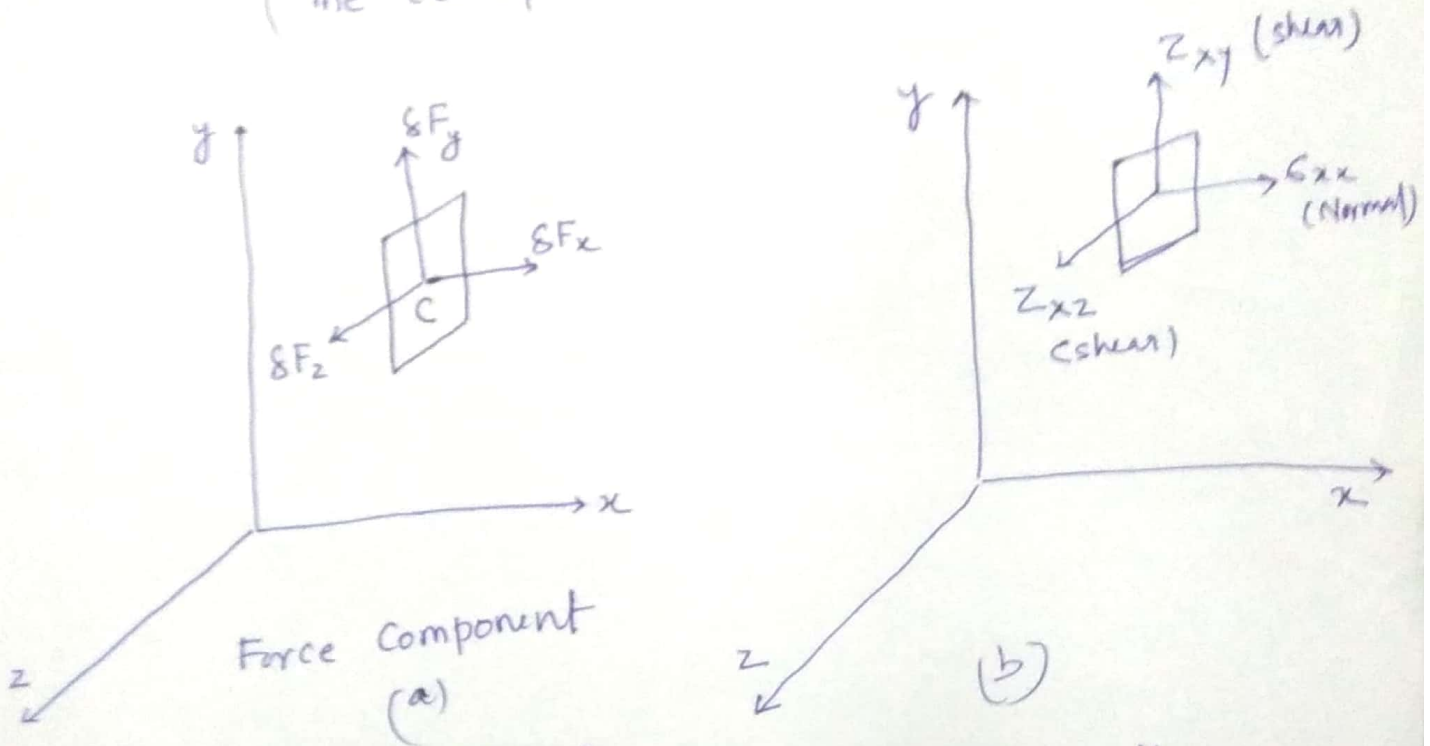 the
y
δFy
δFx
C
δFz
x
z
Force Component
(a)
y
τxy (shear)
σxx
(Normal)
τxz
(shear)
x
z
(b)